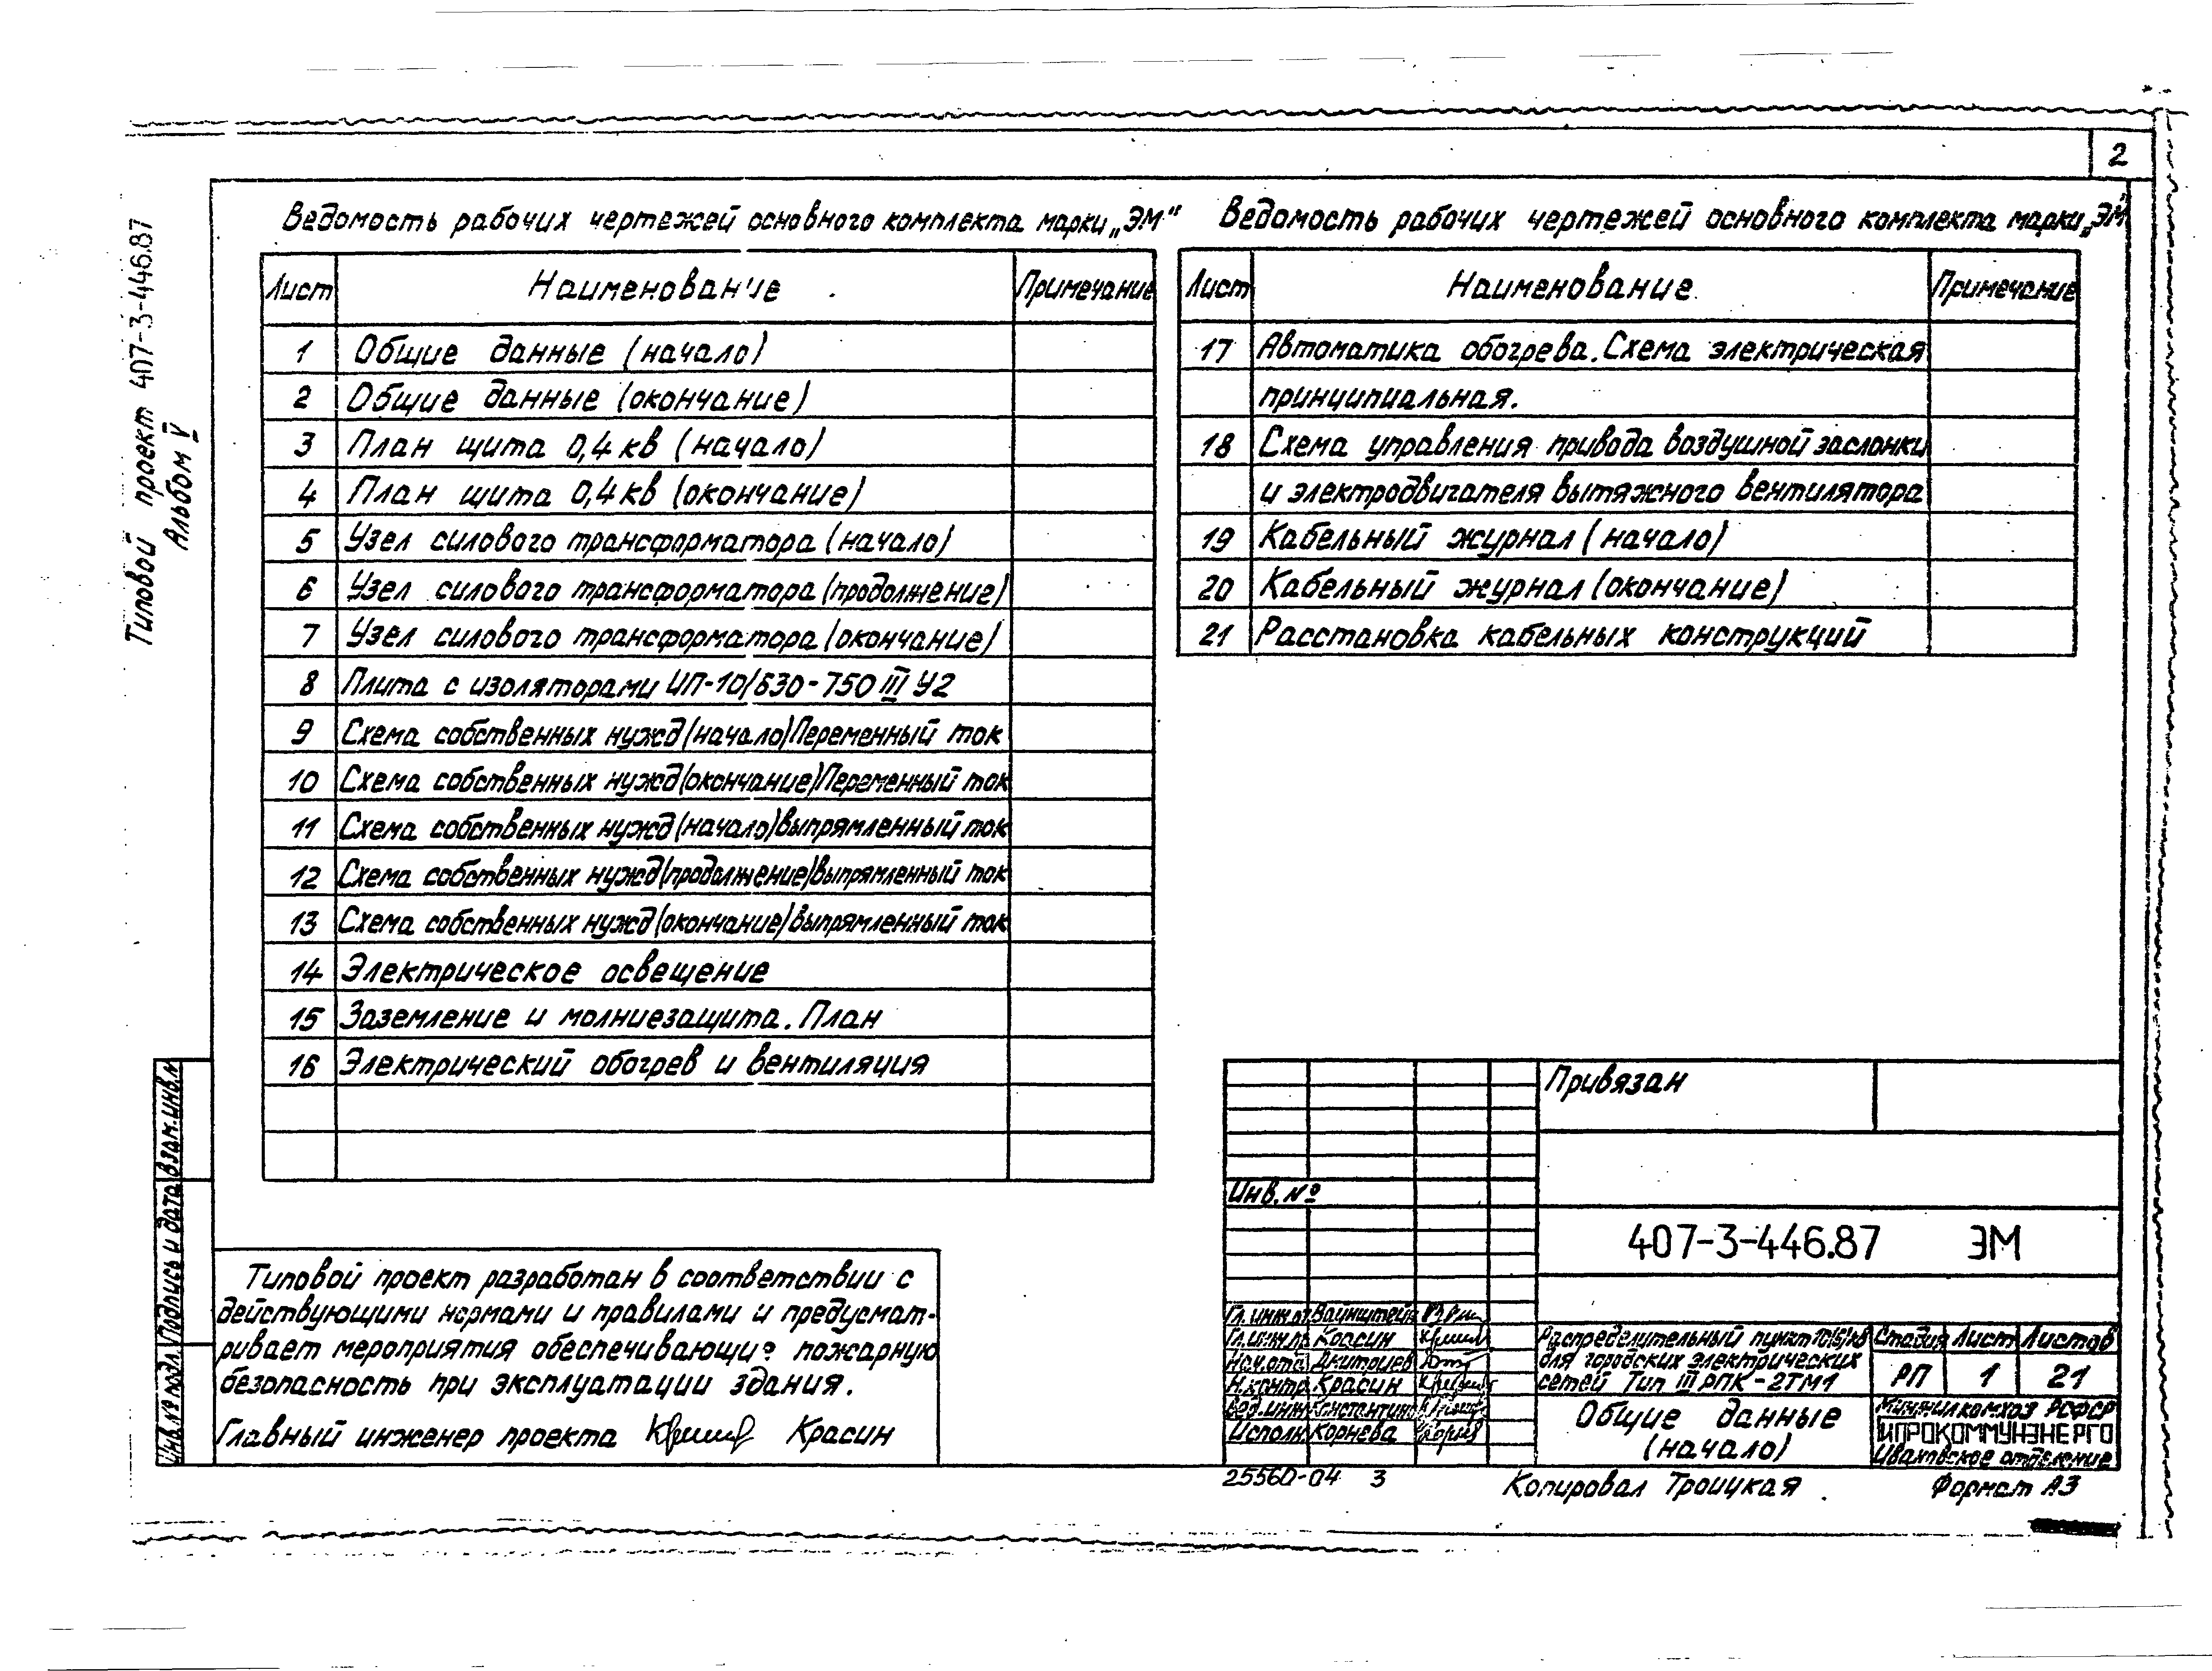 2
Типовой проект 407-3-446.87
Альбом V
Ведомость рабочих чертежей основного комплекта марки „ЭМ“
Лист Наименование Примечание
1 Общие данные (начало)
2 Общие данные (окончание)
3 План щита 0,4 кв (начало)
4 План щита 0,4 кв (окончание)
5 Узел силового трансформатора (начало)
6 Узел силового трансформатора (продолжение)
7 Узел силового трансформатора (окончание)
8 Плита с изоляторами ИП-10/630-750 III У2
9 Схема собственных нужд (начало) Переменный ток
10 Схема собственных нужд (окончание) Переменный ток
11 Схема собственных нужд (начало) выпрямленный ток
12 Схема собственных нужд (продолжение) выпрямленный ток
13 Схема собственных нужд (окончание) выпрямленный ток
14 Электрическое освещение
15 Заземление и молниезащита. План
16 Электрический обогрев и вентиляция
Ведомость рабочих чертежей основного комплекта марки „ЭМ“
Лист Наименование Примечание
17 Автоматика обогрева. Схема электрическая
принципиальная.
18 Схема управления привода воздушной заслонки
и электродвигателя вытяжного вентилятора
19 Кабельный журнал (начало)
20 Кабельный журнал (окончание)
21 Расстановка кабельных конструкций
Типовой проект разработан в соответствии с
действующими нормами и правилами и предусмат-
ривает мероприятия обеспечивающие пожарную
безопасность при эксплуатации здания.
Главный инженер проекта Красин
Взам.инв.№
Подпись и дата
Инв.№ подл.
Привязан
Инв. №
407-3-446.87 ЭМ
Гл.инж.от Вайнштейн
Гл.инж.пр. Красин
Нач.отд. Дмитриев
Н.контр. Красин
Вед.инж. Константино
Исполн. Корнева
Распределительный пункт 10(6)кв
для городских электрических
сетей Тип III РПК-2ТМ1
Стадия Лист Листов
РП 1 21
Общие данные
(начало)
Минжилкомхоз РСФСР
ГИПРОКОММУНЭНЕРГО
Ивановское отделение
25560-04 3
Копировал Троицкая
Формат А3